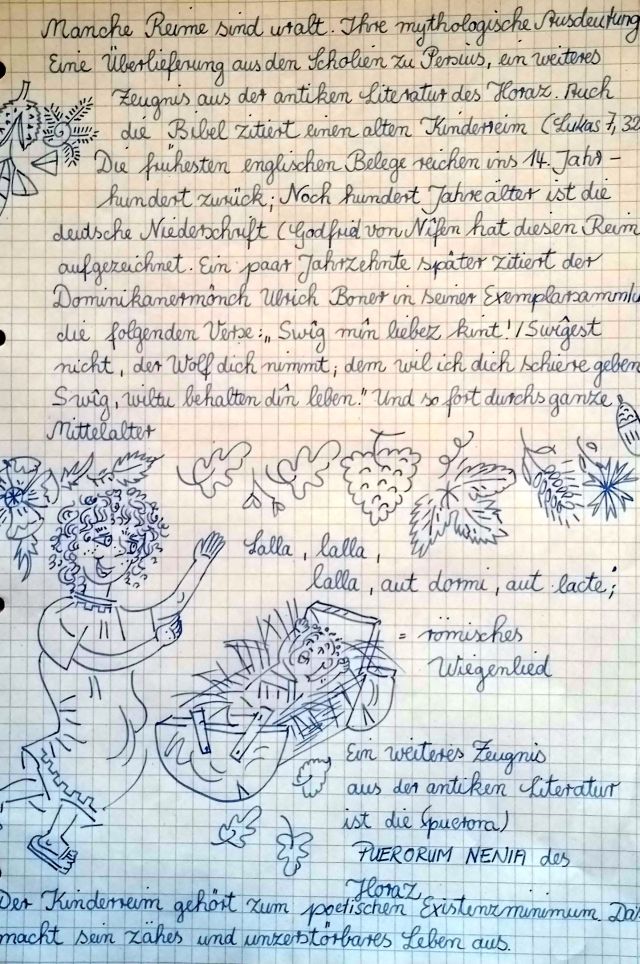 Manche Reime sind uralt. Ihre mythologische Ausdeutung
Eine Überlieferung aus den Scholien zu Persius, ein weiteres
Zeugnis aus der antiken Literatur des Horaz. Auch
die Bibel zitiert einen alten Kinderreim (Lukas 7, 32
Die frühesten englischen Belege reichen ins 14. Jahr-
hundert zurück; Noch hundert Jahre älter ist die
deutsche Niederschrift (Godfrid von Nifen hat diesen Reim
aufgezeichnet. Ein paar Jahrzehnte später zitiert der
Dominikanermönch Ulrich Boner in seiner Exemplarsammlu
die folgenden Verse: „Swîg mîn liebez kint! / Swîgest
nicht, der Wolf dich nimmt, dem wil ich dich schiere geben
Swîg, wiltu behalten dîn leben." Und so fort durchs ganze
Mittelalter
Lalla, lalla,
lalla, aut dormi, aut lacte;
= römisches
Wiegenlied
Ein weiteres Zeugnis
aus der antiken Literatur
ist die (puerora)
PUERORUM NENIA des
Horaz
Der Kinderreim gehört zum poetischen Existenzminimum. Das
macht sein zähes und unzerstörbares Leben aus.